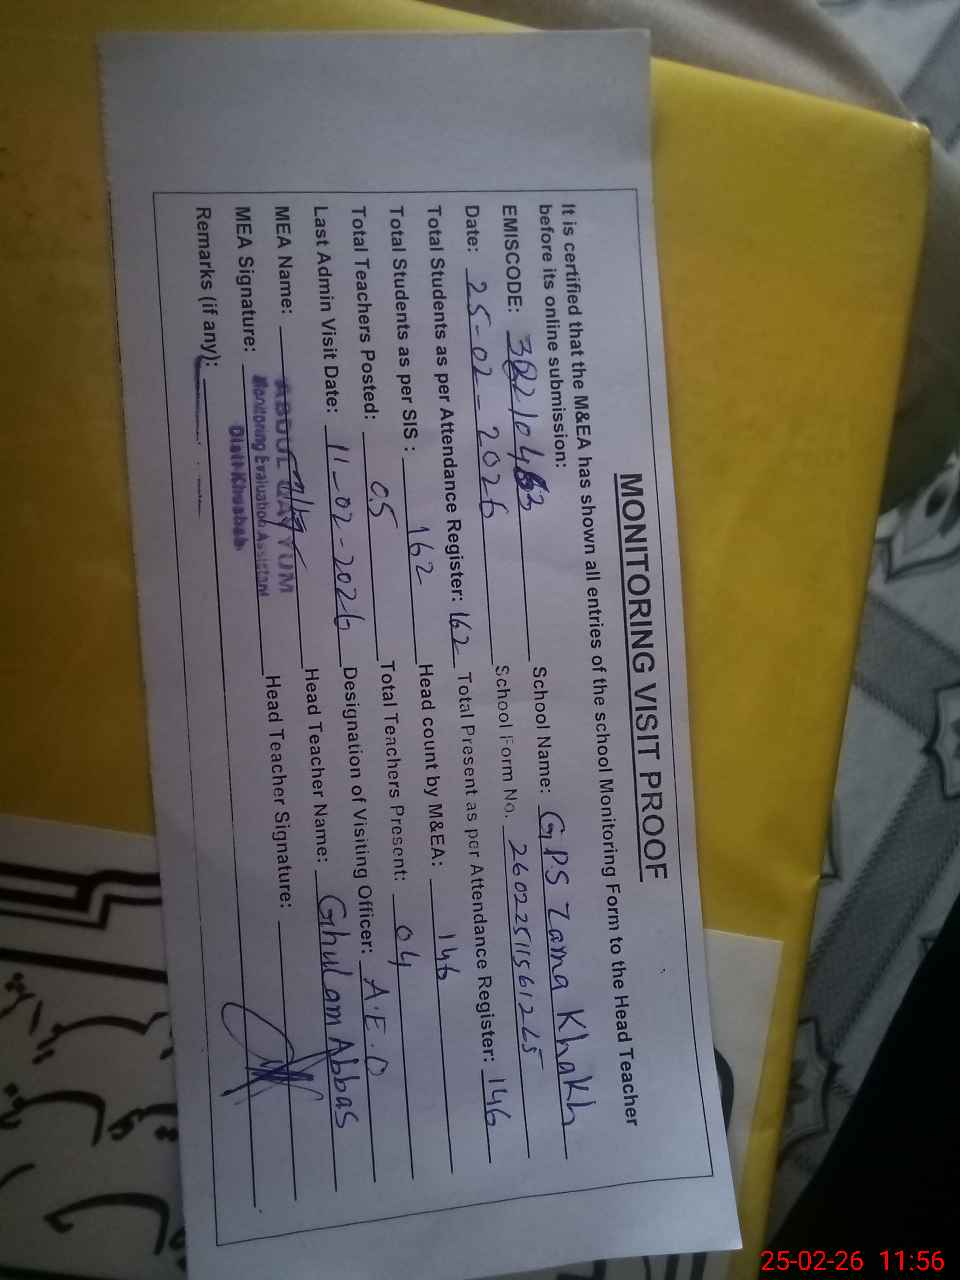 MONITORING VISIT PROOF
It is certified that the M&EA has shown all entries of the school Monitoring Form to the Head Teacher
before its online submission:
EMISCODE: School Name: GPS Zama Khakh
Date: 25-02-2026 School Form No. 2602251156 1265
Total Students as per Attendance Register: 162 Total Present as per Attendance Register: 146
Total Students as per SIS : 162 Head count by M&EA: 146
Total Teachers Posted: 05 Total Teachers Present: 04
Last Admin Visit Date: 11-02-2026 Designation of Visiting Officer: A.E.O
MEA Name: ABDUL QAYYUM Head Teacher Name: Ghulam Abbas
Monitoring Evaluation Assistant
MEA Signature: Distt Khushab Head Teacher Signature:
Remarks (if any):
25-02-26 11:56